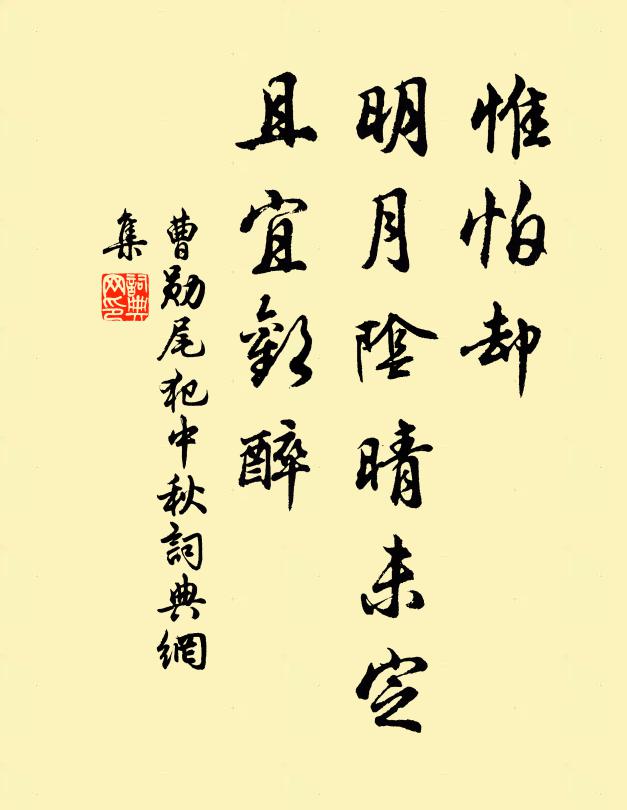 惟怕却
明月陰晴未定
且宜歡醉
曹勛尾犯中秋詞典網
集
詞典網印